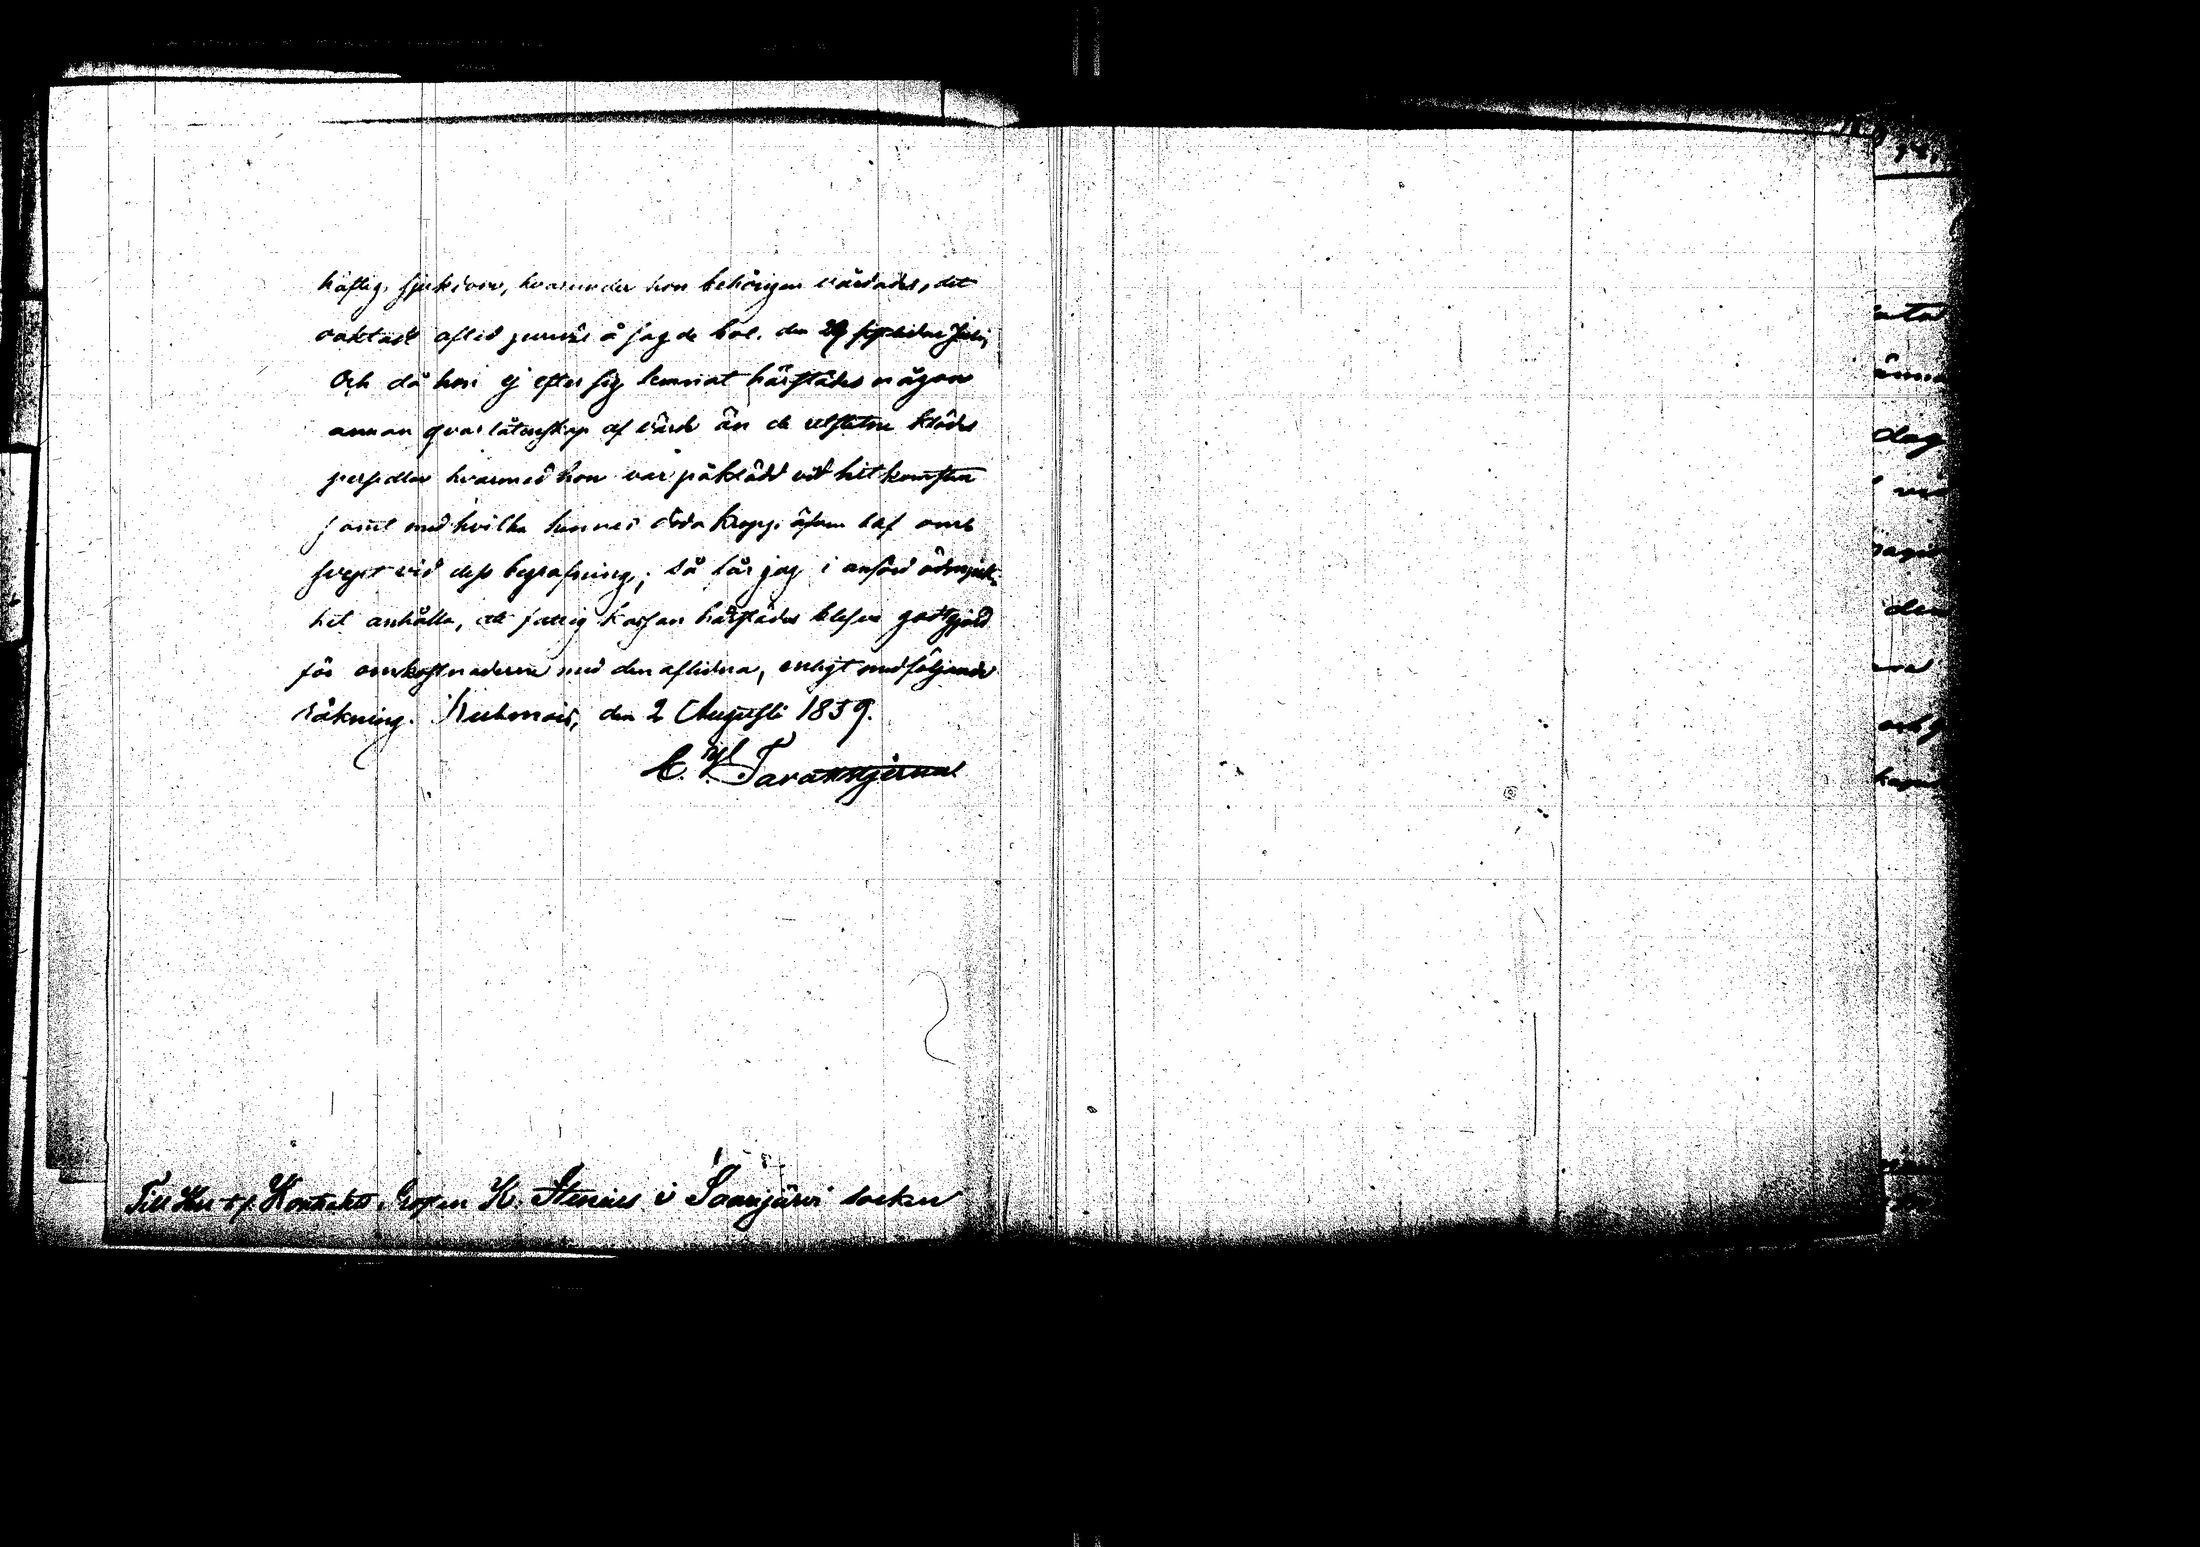 häftig sjukdom, hvarunder hon behörigen vårdades, det
oaktadt afled å sagde bol. den 29 Julij
Och då hon ej efter sig lemnat härstädes någon
annan qvarlåtenskap af värde än de utslitne kläde
persedlar hvarmed hon var påklädd vid hitkomsten
samt med hvilka hennes döda kropp äfven blef om
svept vid dess begrafning; så får jag i anförd ödmjuk-
het anhålla, att fattig kassan härstädes blefve godtgjord
för omkostnaderne med den aflidna, enligt medföljande
räkning. Kuhmois, den 2 Augusti 1859.
C. Tavaststjerna
Till Kontrakts Prosten H. Stenius i Saarijärvi socken
dag
den